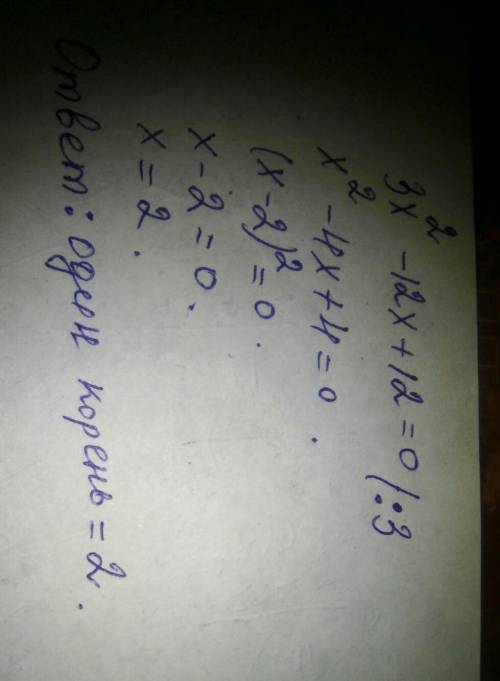 3x² - 12x + 12 = 0 /:3
x² - 4x + 4 = 0.
(x - 2)² = 0.
x - 2 = 0.
x = 2.
Ответ: один корень = 2.